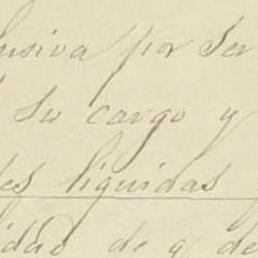 usiva por ser
su cargo y
des liquidas
idad de q de